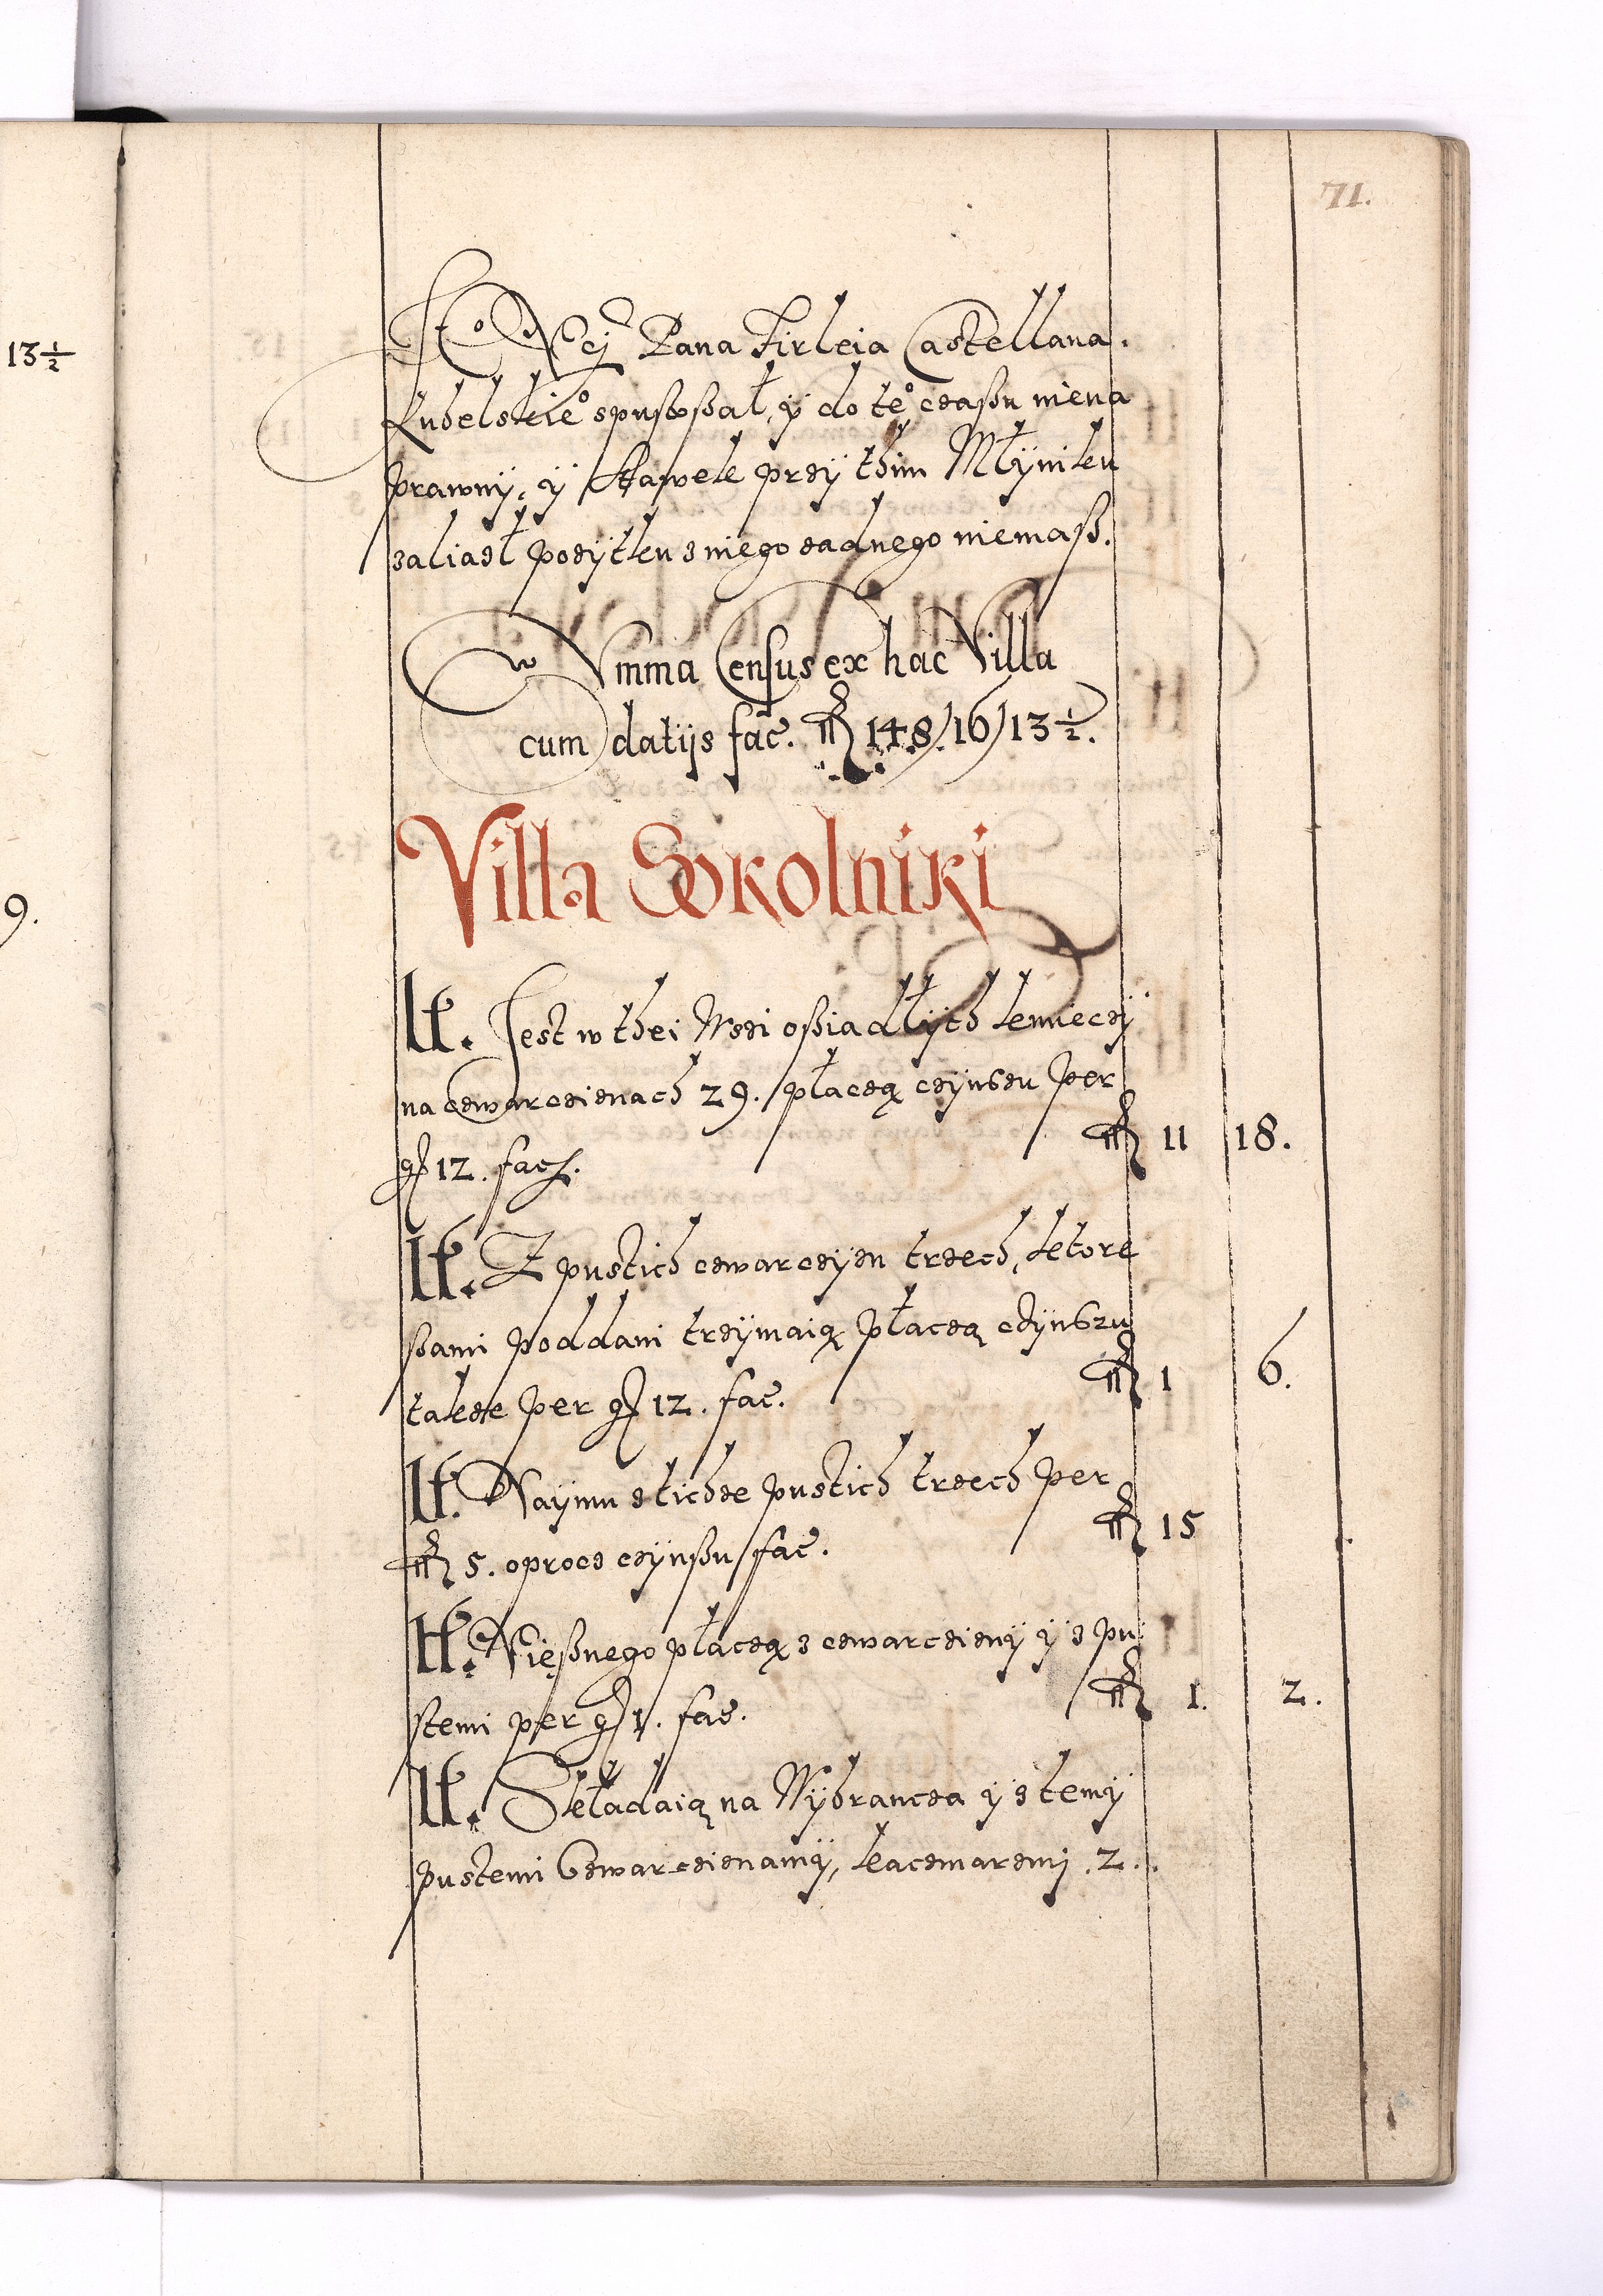 71.
13 1/2
9.
Jº Mcj Pana Firleia Castellana.
Lubelskieº spustoßał, ÿ do teº czaßu niena
prawnÿ, ÿ Stawek przÿ thim Młÿnikü
zaliazł pozÿtku z niego zadnego niemaß.
Summa Census ex hac Villa
cum datijs fac. 148/16/13 1/2.
Villa Sokolniki
It. Jest w thei Wsei oßiadłÿch kmieczÿ
na czwarczienach 29. płaczą czÿnszu per
gr 12. fac. 11 18.
It. Z pustich czwarczÿzn trzech, ktore
ßami poddani trzÿmaią płaczą czÿnszu
takze per gr 12. fac. 1 6.
It. Naÿmu z tichze pustich trzech per
5. oprocz czÿnßu fac. 15
It. Mięßnego płaczą z czwarczienÿ ÿ z pu
stemi per gr 1. fac. 1. 2.
It. Składaią na Wÿbrancza ÿ z temÿ
pustemi Czwarczienamÿ, kaczmarzmi .2..